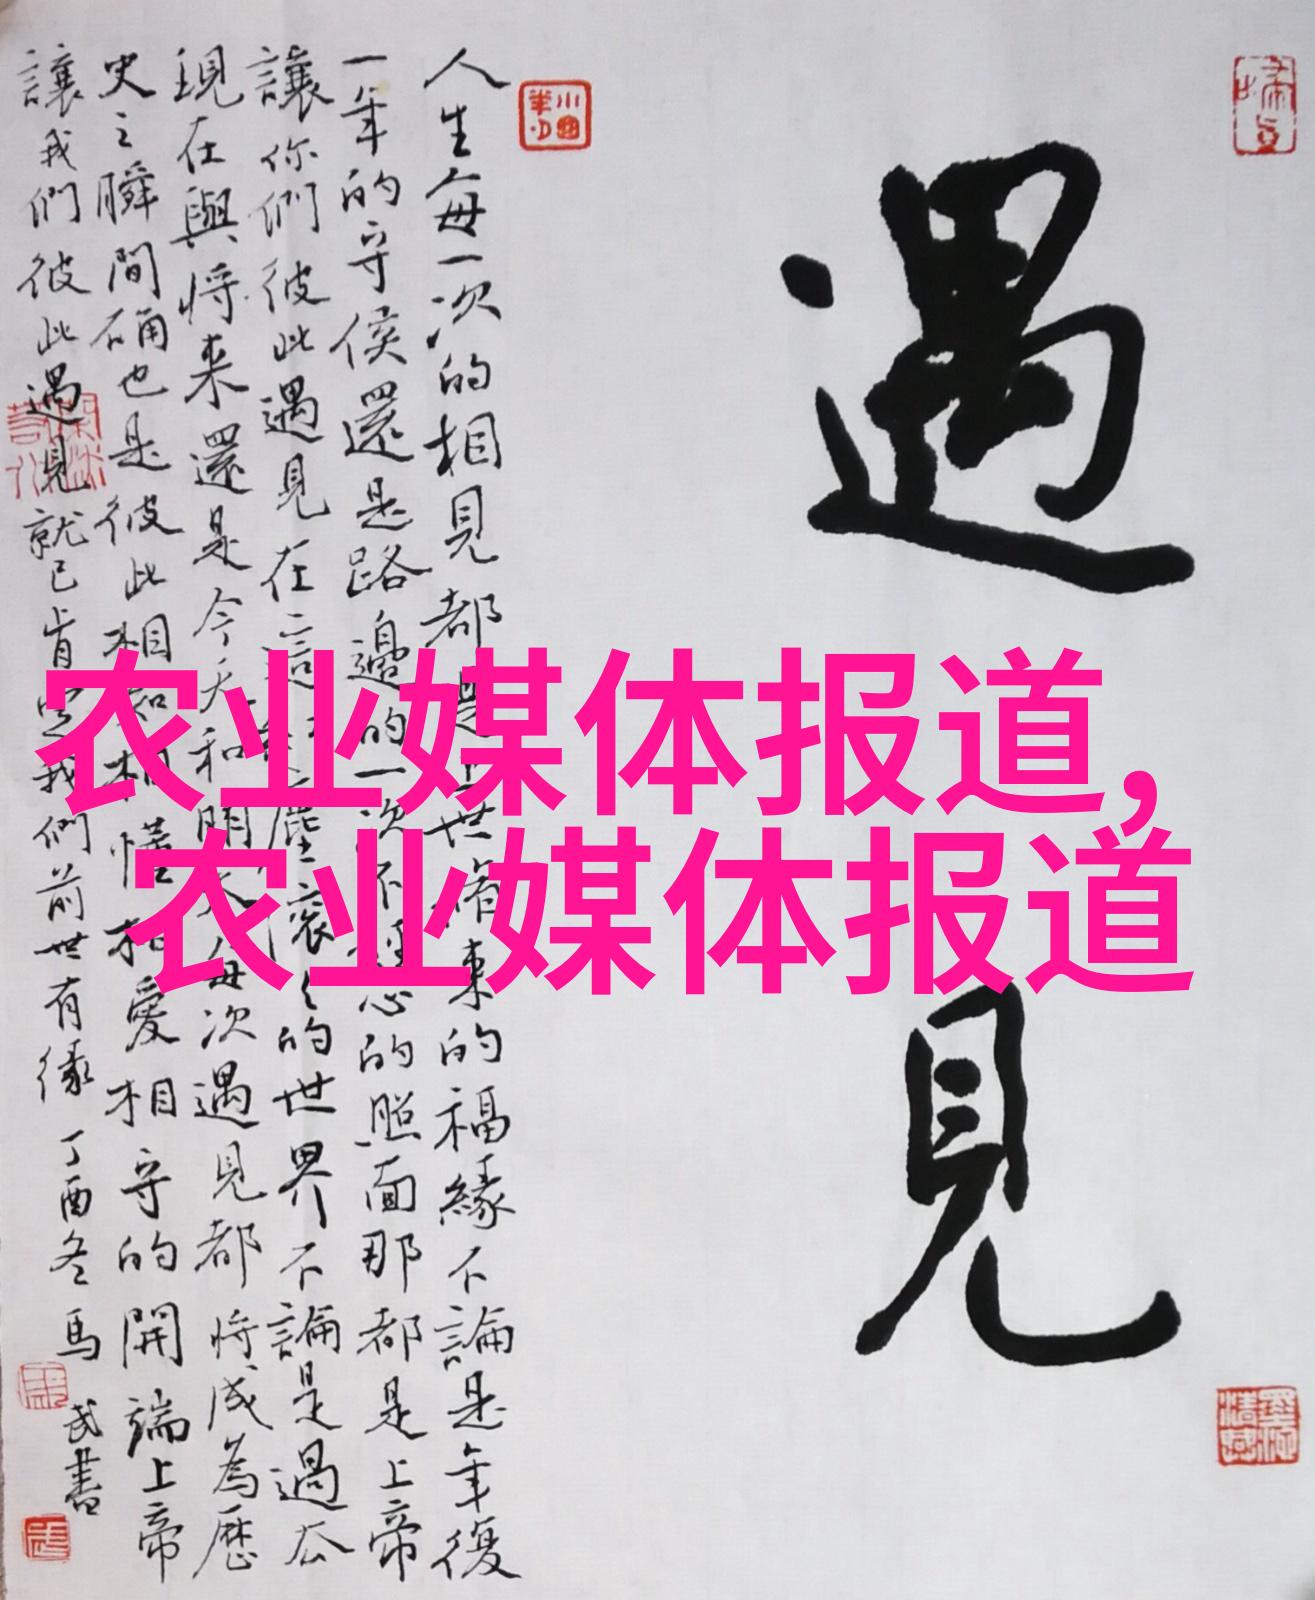 遇見
人生每一次的相見都是上世修来的福緣不論是年復
一年的守侯還是路邊的一次不經意的照面那都是上帝
讓你們彼此遇見在這紅塵衮々的世界不論是過去
現在與将来還是今天和明天每次遇見都将成為歷
史之瞬間确也是彼此相知相懂相愛相守的開端上帝
讓我們彼此遇見就已肯定我們前世有缘
丁酉冬馬武書
农业媒体报道,
农业媒体报道